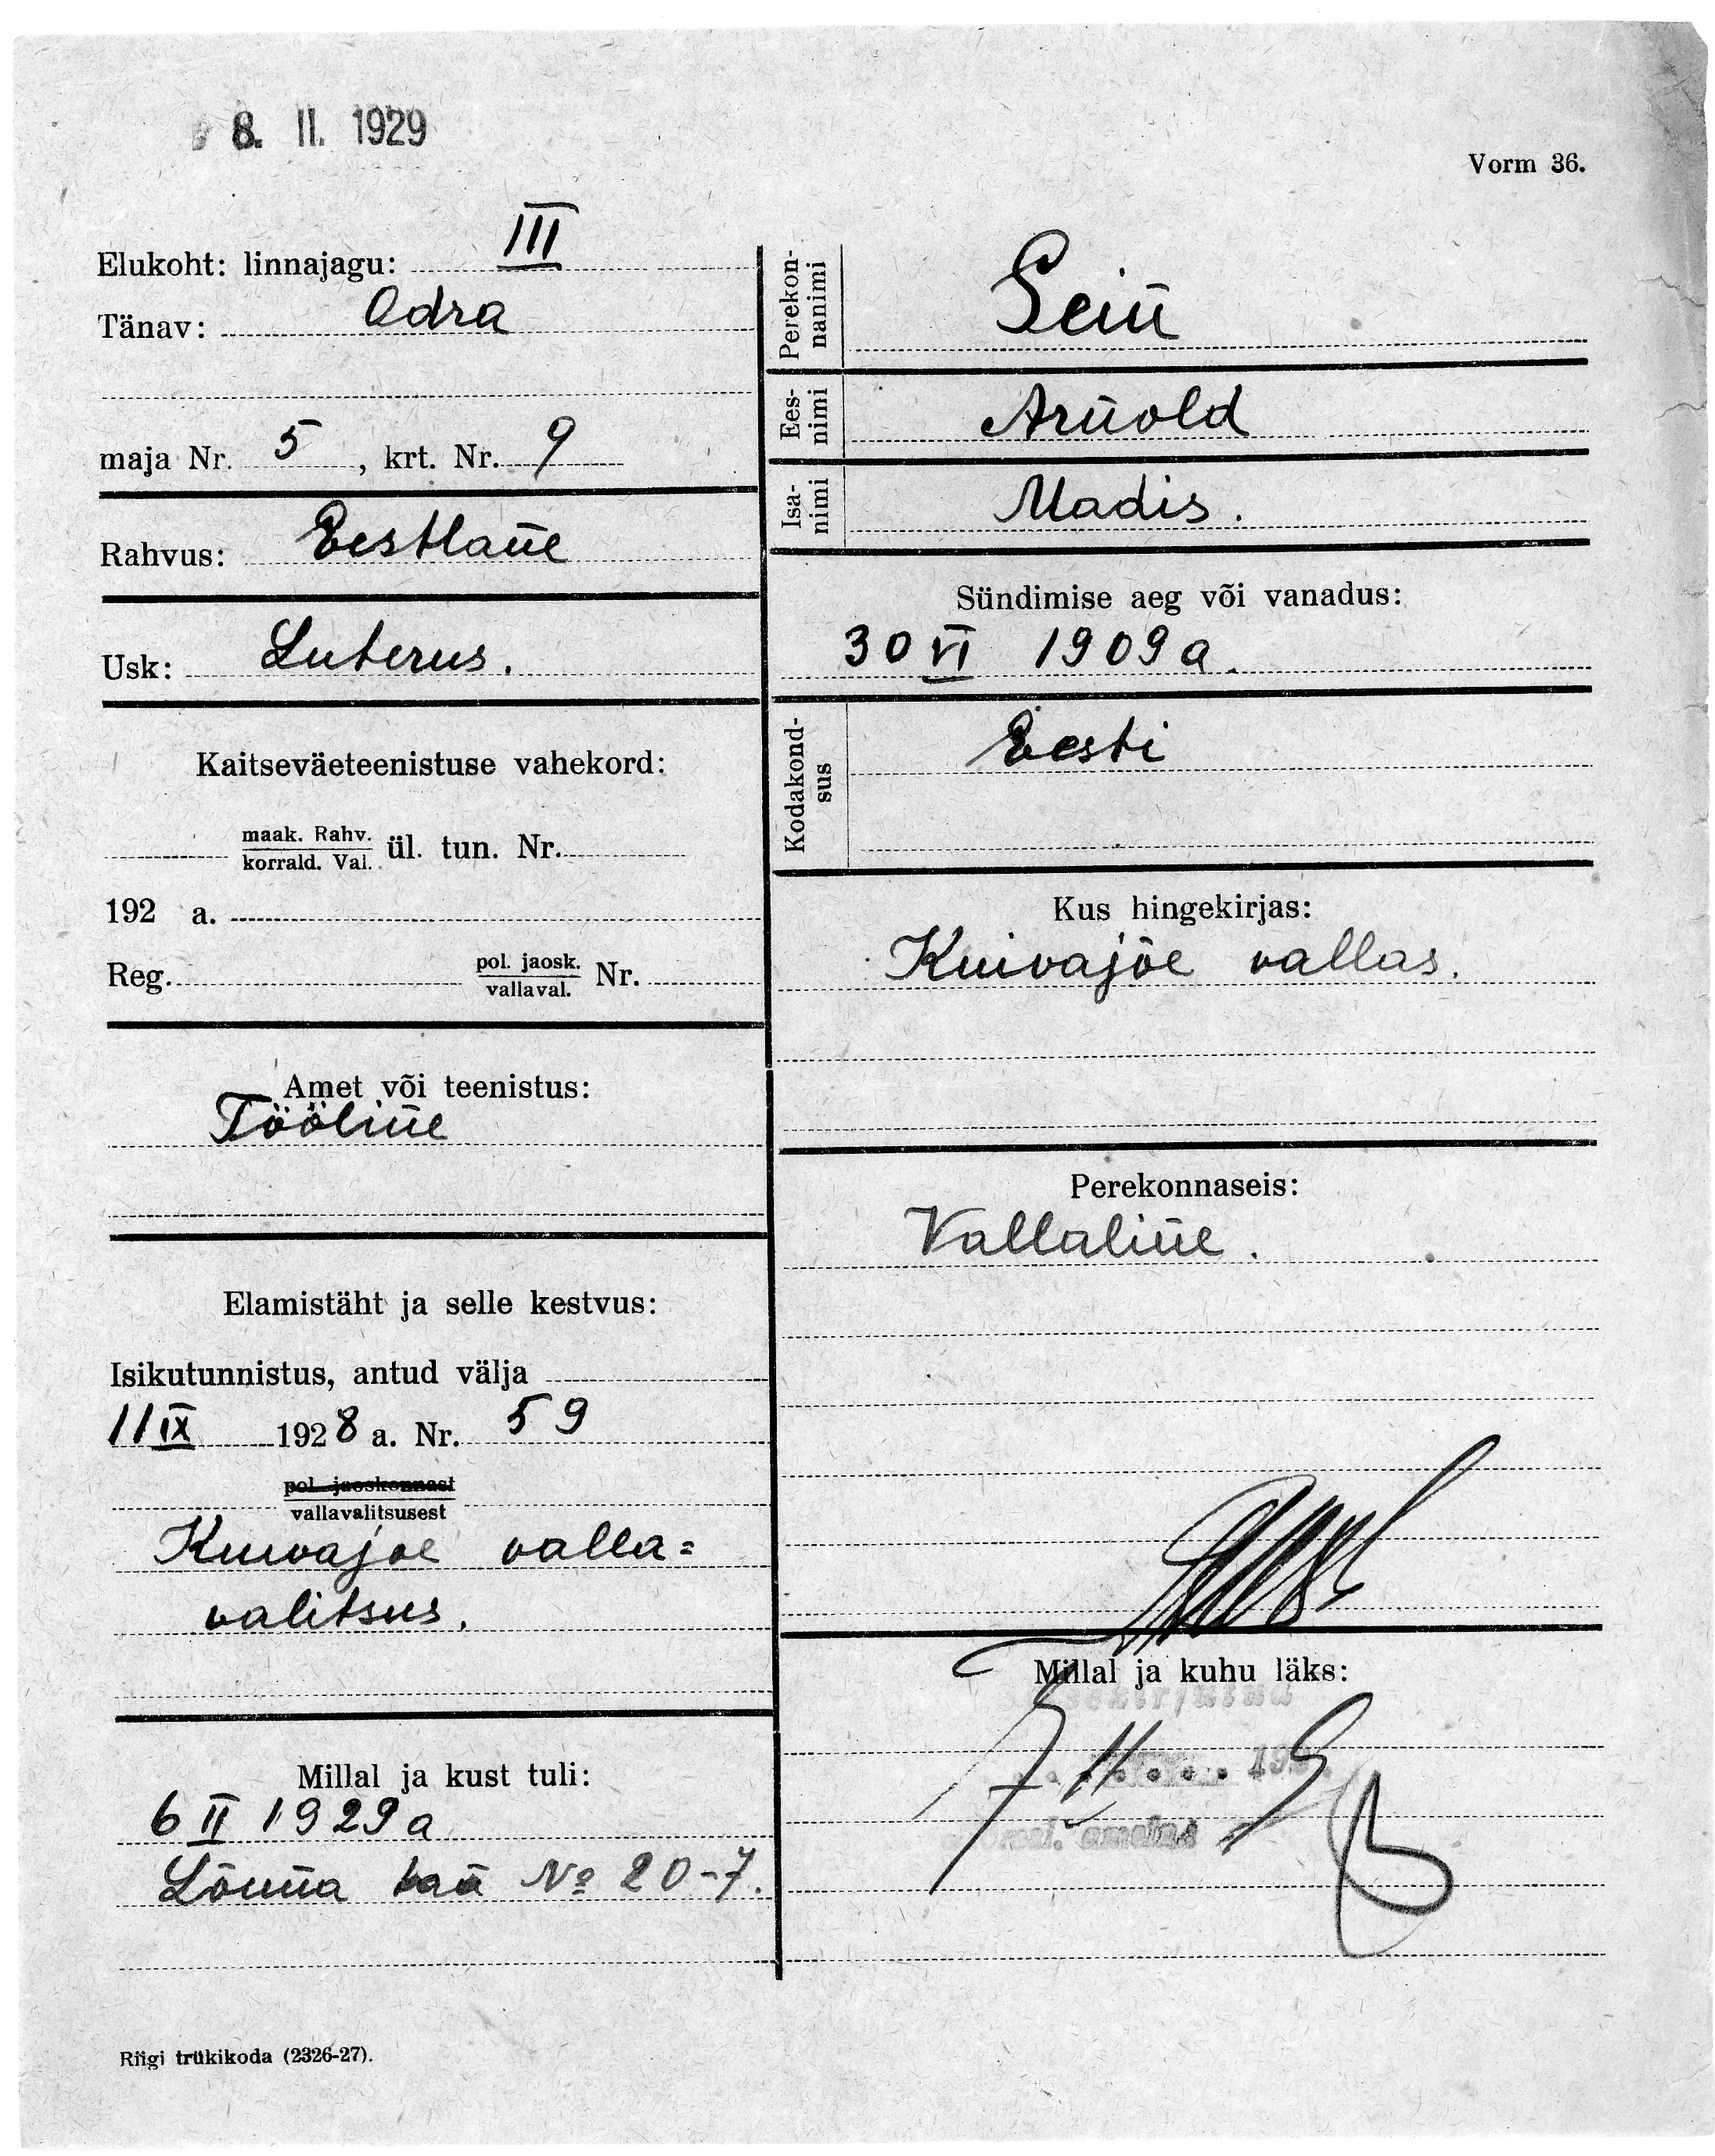 8. II. 1929
Vorm 36.
Elukoht: linnajagu: III
Tänav: Odra
maja Nr. 5, krt. Nr. 9
Rahvus: Eestlane
Usk: Luterus.
Kaitseväeteenistuse vahekord:
maak. Rahv.
korrald. Val. ül. tun. Nr.
192 a.
Reg. pol. jaosk.
vallaval. Nr.
Amet või teenistus:
Tööline
Elamistäht ja selle kestvus:
Isikutunnistus, antud välja
11 IX 1928 a. Nr. 59
pol. jaoskonnast
vallavalitsusest
Kuivajõe valla=
valitsus.
Millal ja kust tuli:
6 II 1929 a
Lõuna tän № 20-7.
Riigi trükikoda (2326-27).
Perekon-
nanimi Sein
Ees-
nimi Arnold
Isa-
nimi Madis.
Sündimise aeg või vanadus:
30 VI 1909 a.
Kodakond-
sus Eesti
Kus hingekirjas:
Kuivajõe vallas.
Perekonnaseis:
Vallaline.
Millal ja kuhu läks: